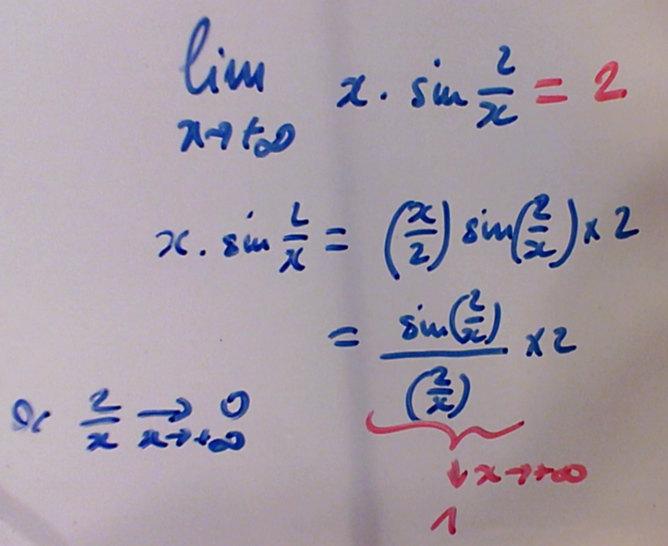 lim x→+∞ x · sin 2/x = 2
x · sin 2/x = (x/2) sin(2/x) × 2
= sin(2/x) / (2/x) × 2
or 2/x → 0 x→+∞
↓ x→+∞
1